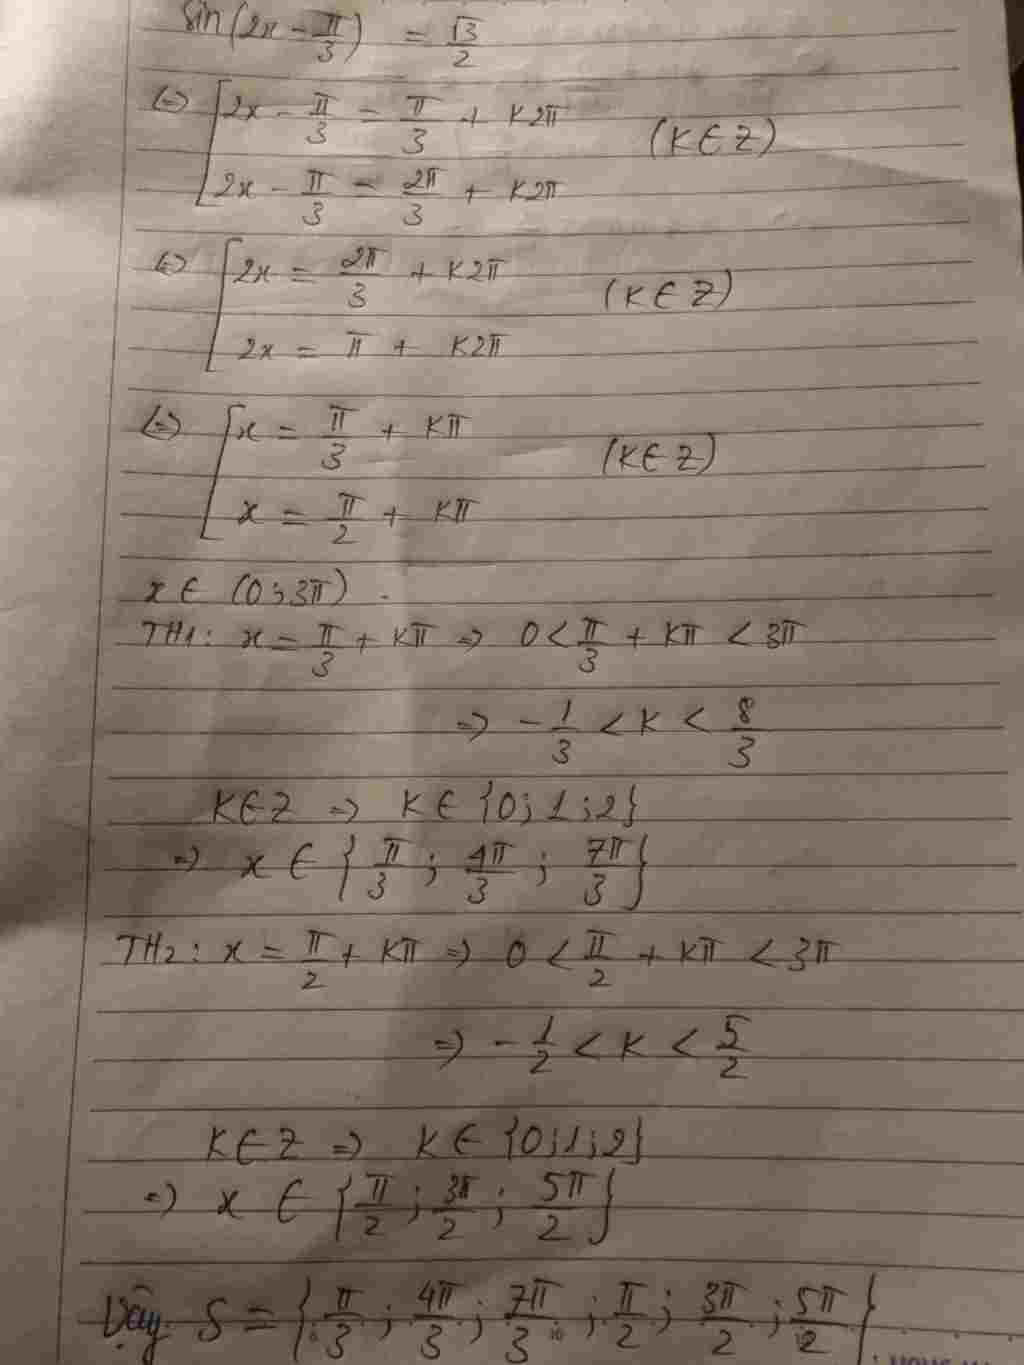 sin(2x - π/3) = √3/2
(=) [2x - π/3 = π/3 + K2π
(K∈Z)
[2x - π/3 = 2π/3 + K2π
(=) [2x = 2π/3 + K2π
(K∈Z)
[2x = π + K2π
(=) [x = π/3 + Kπ
(K∈Z)
[x = π/2 + Kπ
x ∈ (0;3π).
TH1: x = π/3 + Kπ => 0 < π/3 + Kπ < 3π
=> -1/3 < K < 8/3
K∈Z => K∈{0;1;2}
=> x ∈ {π/3; 4π/3; 7π/3}
TH2: x = π/2 + Kπ => 0 < π/2 + Kπ < 3π
=> -1/2 < K < 5/2
K∈Z => K∈{0;1;2}
=> x ∈ {π/2; 3π/2; 5π/2}
Vậy S = {π/3; 4π/3; 7π/3; π/2; 3π/2; 5π/2}